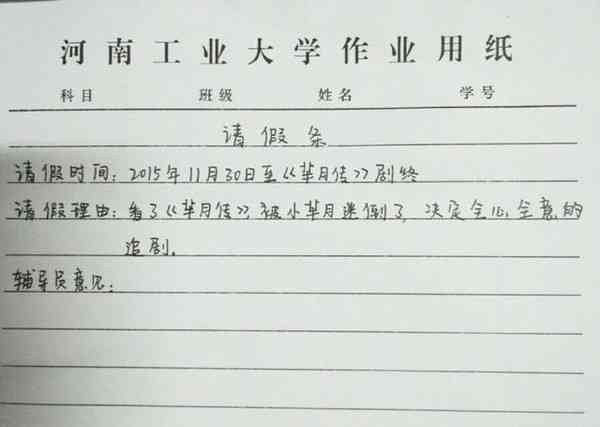 河南工业大学作业用纸
科目 班级 姓名 学号
请假条
请假时间：2015年11月30日至《芈月传》剧终
请假理由：看了《芈月传》，被小芈月迷倒了，决定全心全意的
追剧.
辅导员意见：